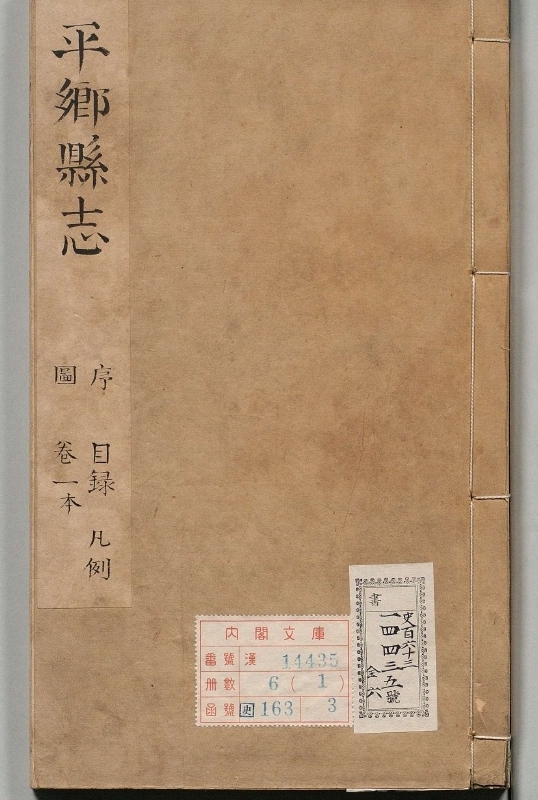 平鄉縣志
序 目録 凡例
圖 卷一本
內閣文庫
番號 漢 14435
册數 6(1)
函號 史 163 3
書
史百六十三
一四四三五號
全六